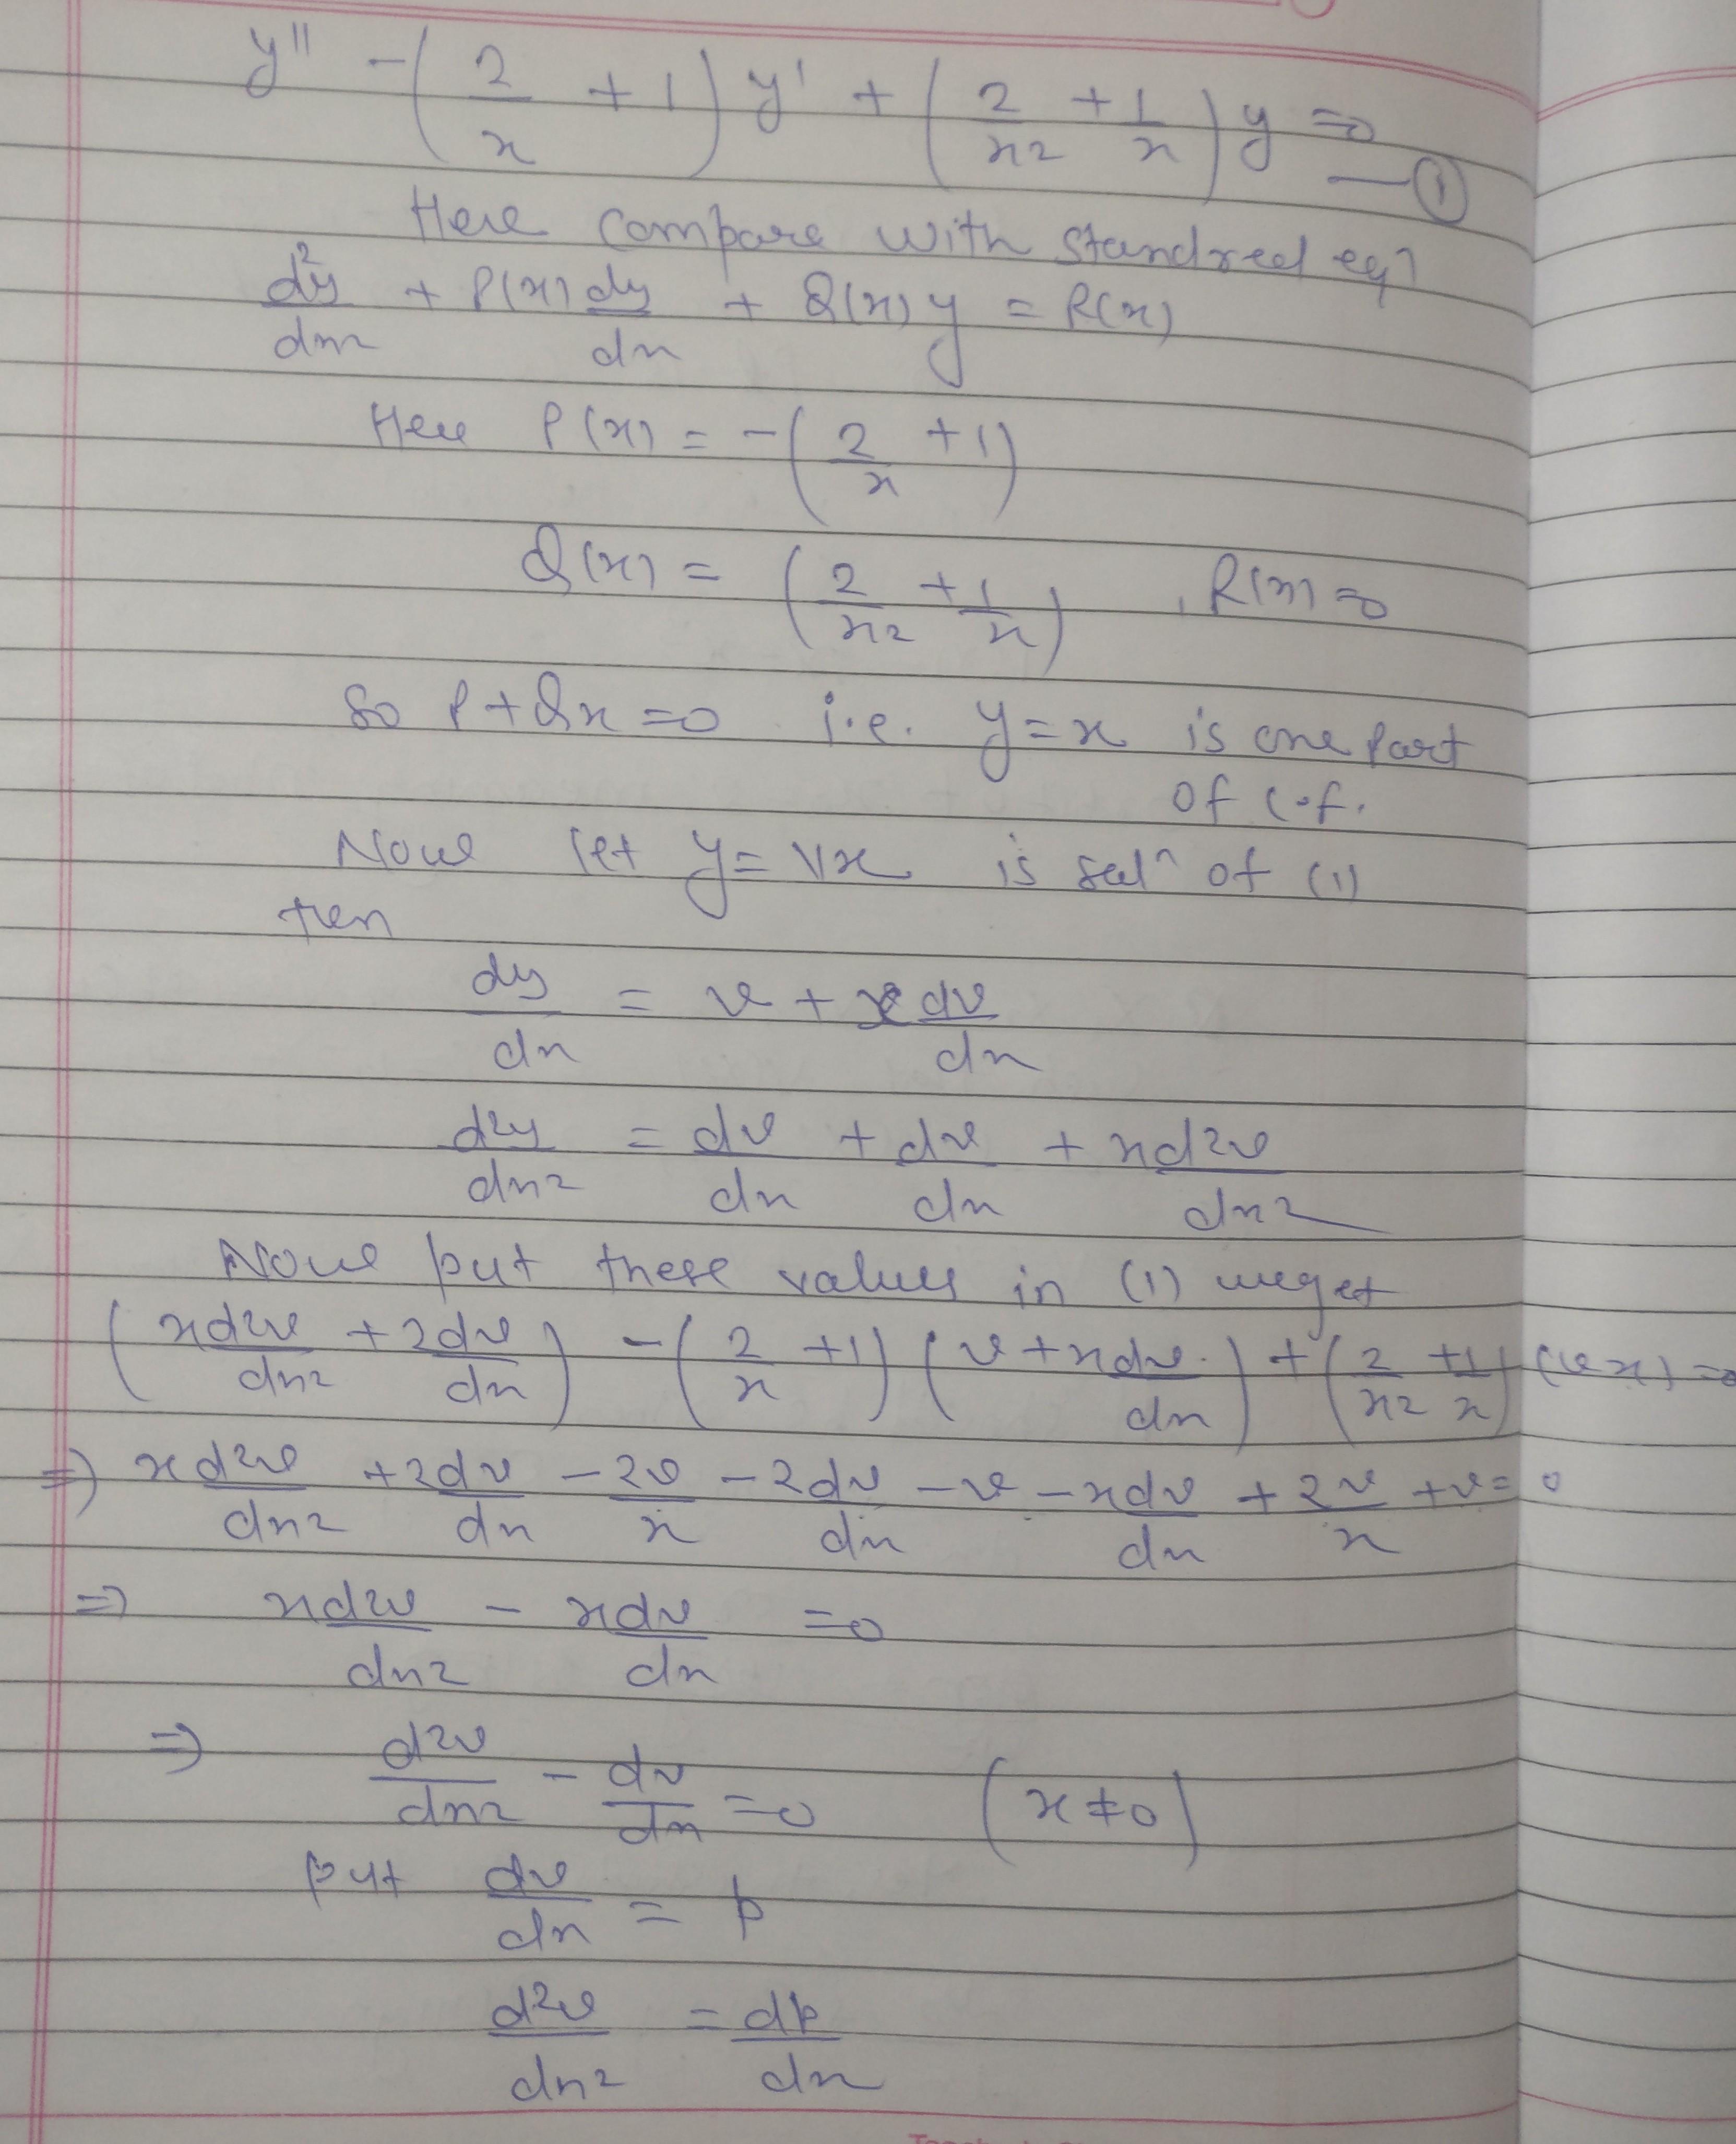 y'' - (2/x + 1) y' + (2/x2 + 1/x) y = 0 — (1)
Here compare with standred eqn
d²y/dx2 + P(x) dy/dx + Q(x) y = R(x)
Here P(x) = - (2/x + 1)
Q(x) = (2/x2 + 1/x) , R(x) = 0
So P + Qx = 0 i.e. y = x is one part
of C.f.
Now let y = vx is soln of (1)
then
dy/dx = v + x dv/dx
d2y/dx2 = dv/dx + dv/dx + x d2v/dx2
Now put these values in (1) we get
(x d2v/dx2 + 2 dv/dx) - (2/x + 1) (v + x dv/dx) + (2/x2 + 1/x) (vx) = 0
⇒ x d2v/dx2 + 2 dv/dx - 2v/x - 2 dv/dx - v - x dv/dx + 2v/x + v = 0
⇒ x d2v/dx2 - x dv/dx = 0
⇒ d2v/dx2 - dv/dx = 0 (x ≠ 0)
put dv/dx = p
d2v/dx2 = dp/dx